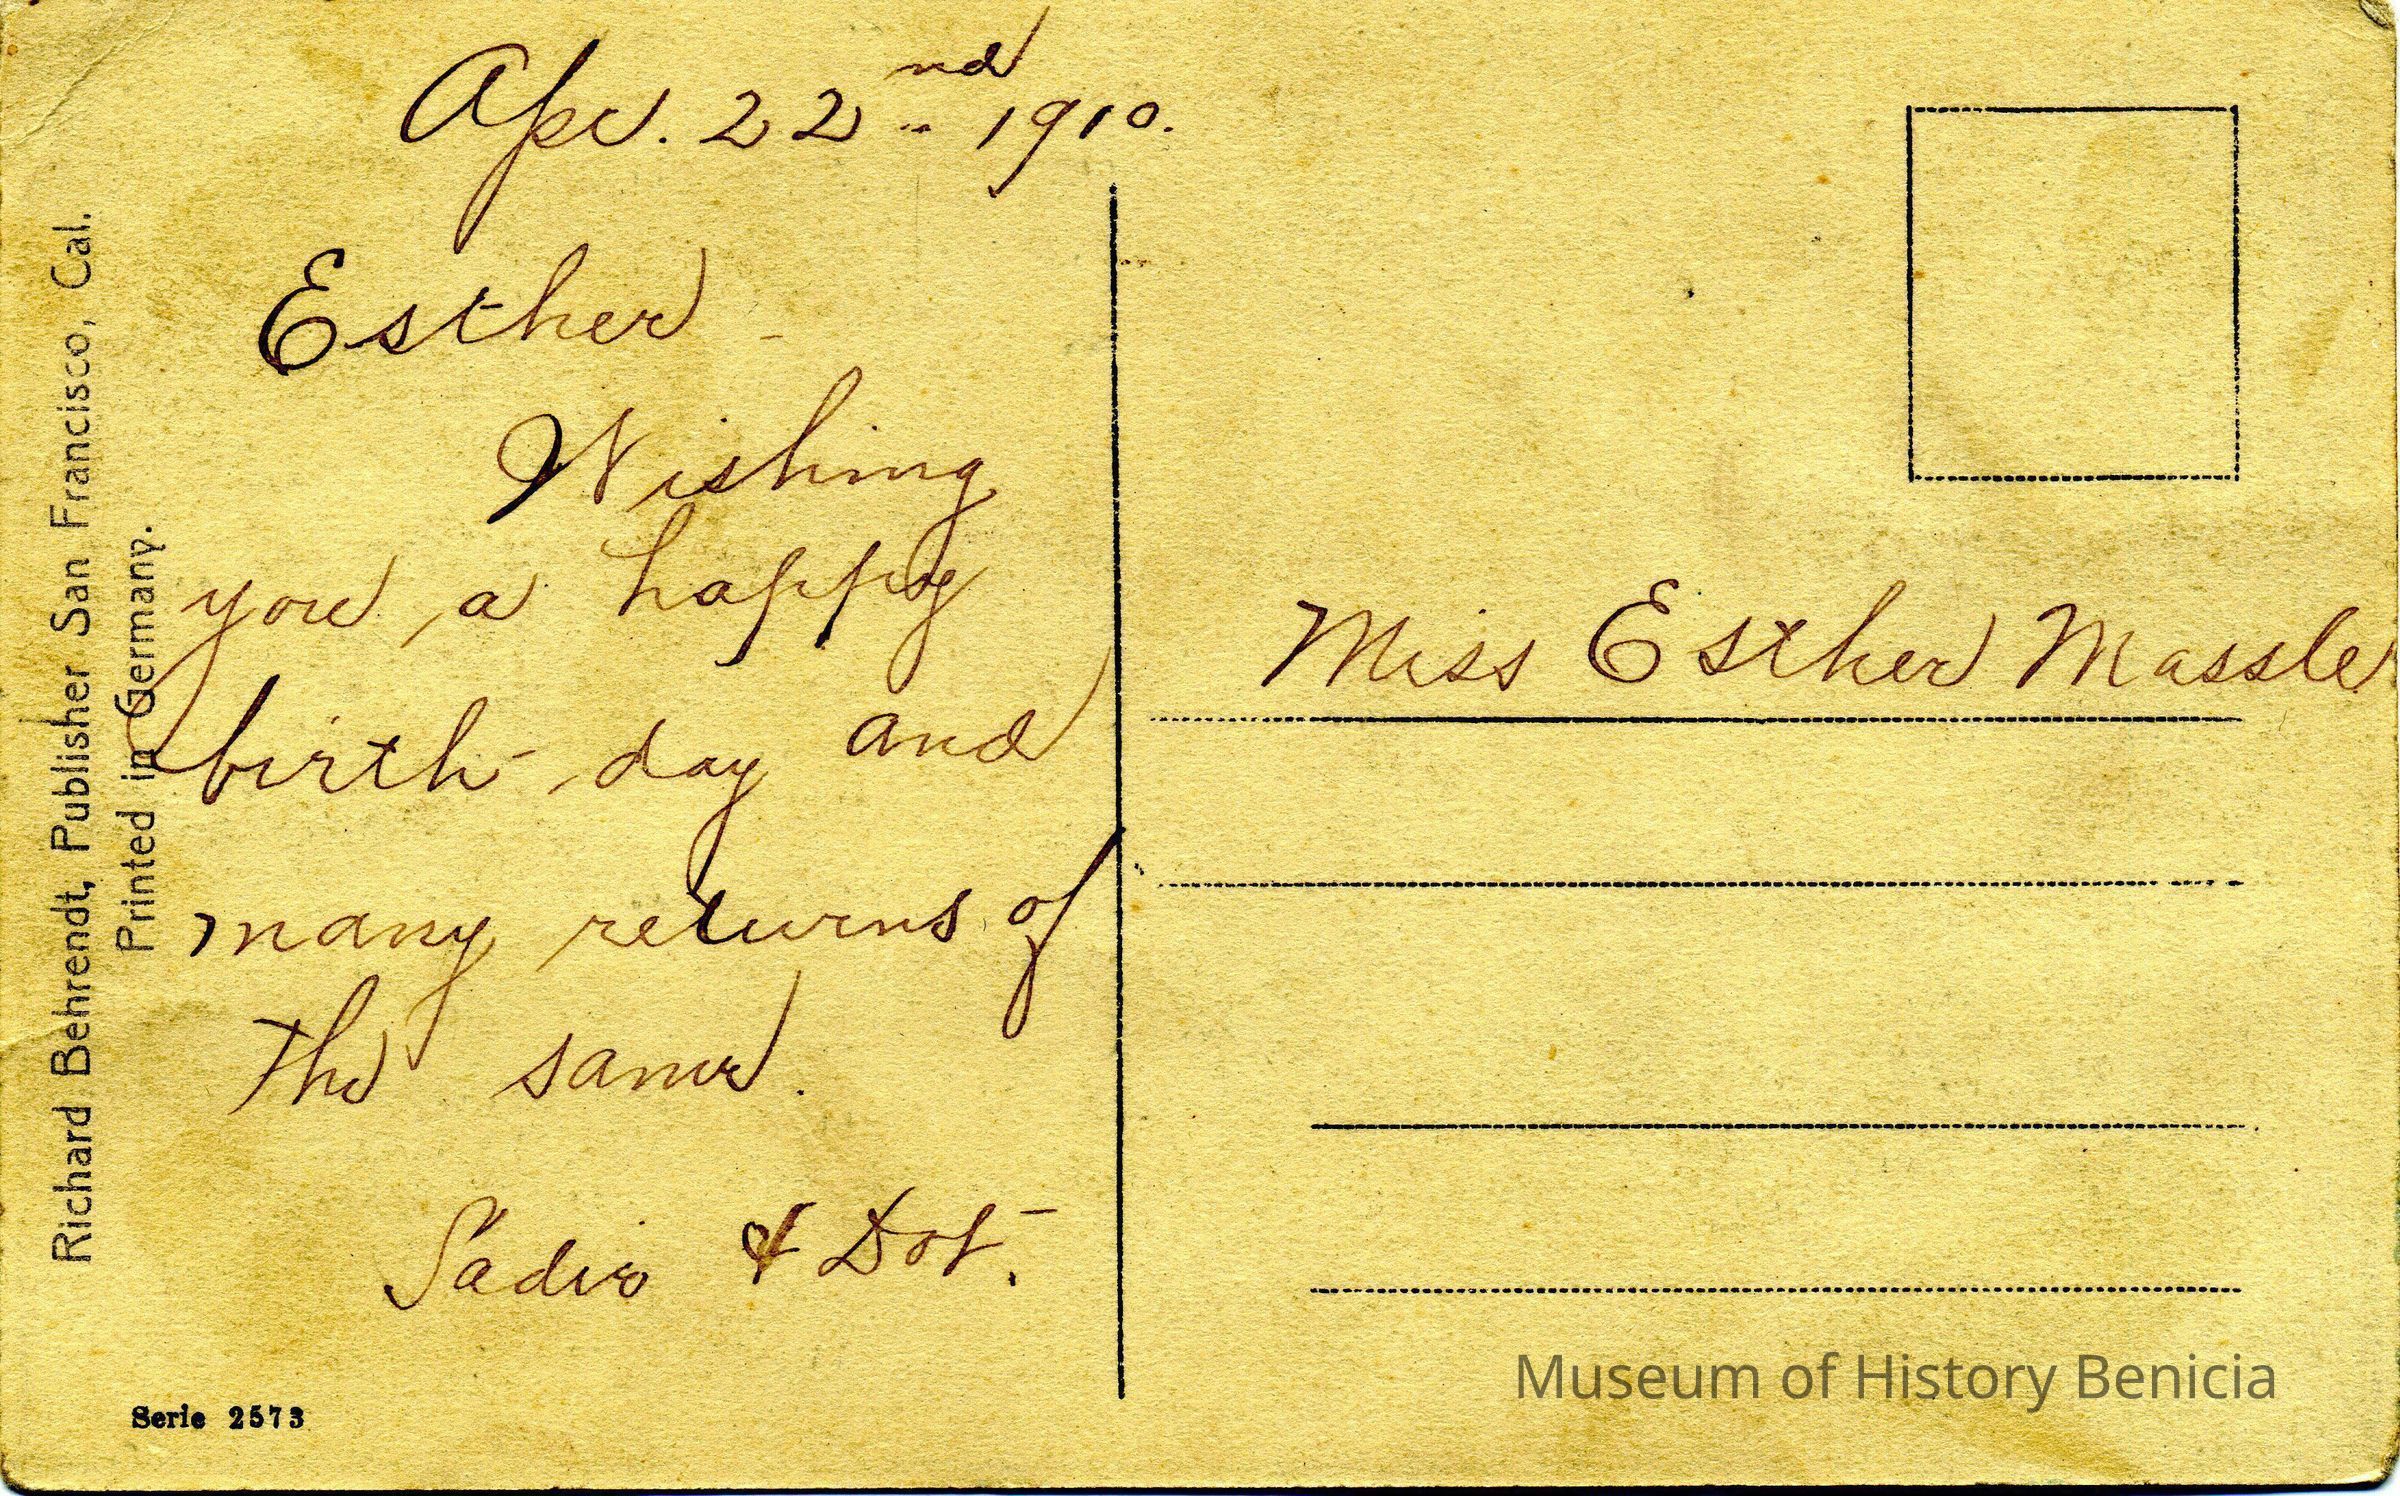 Apr. 22nd 1910.
Esther -
Wishing
you a happy
birth-day and
many returns of
the same.
Sadie & Dot.
Miss Esther Massle
Richard Behrendt, Publisher San Francisco, Cal.
Printed in Germany.
Serie 2573
Museum of History Benicia